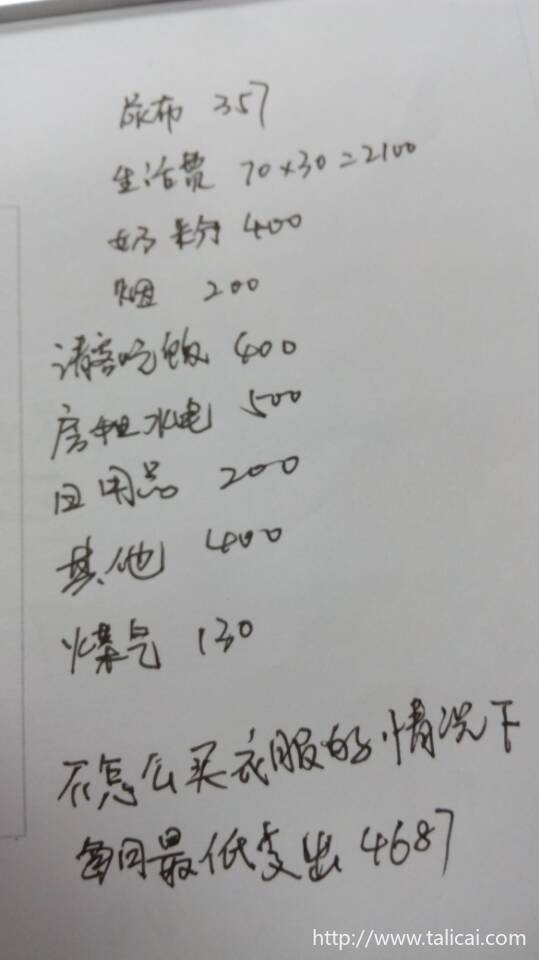 尿布 357
生活费 70×30=2100
奶粉 400
烟 200
请客吃饭 400
房租水电 500
日用品 200
其他 400
煤气 130
不怎么买衣服的情况下
每月最低支出 4687
http://www.talicai.com